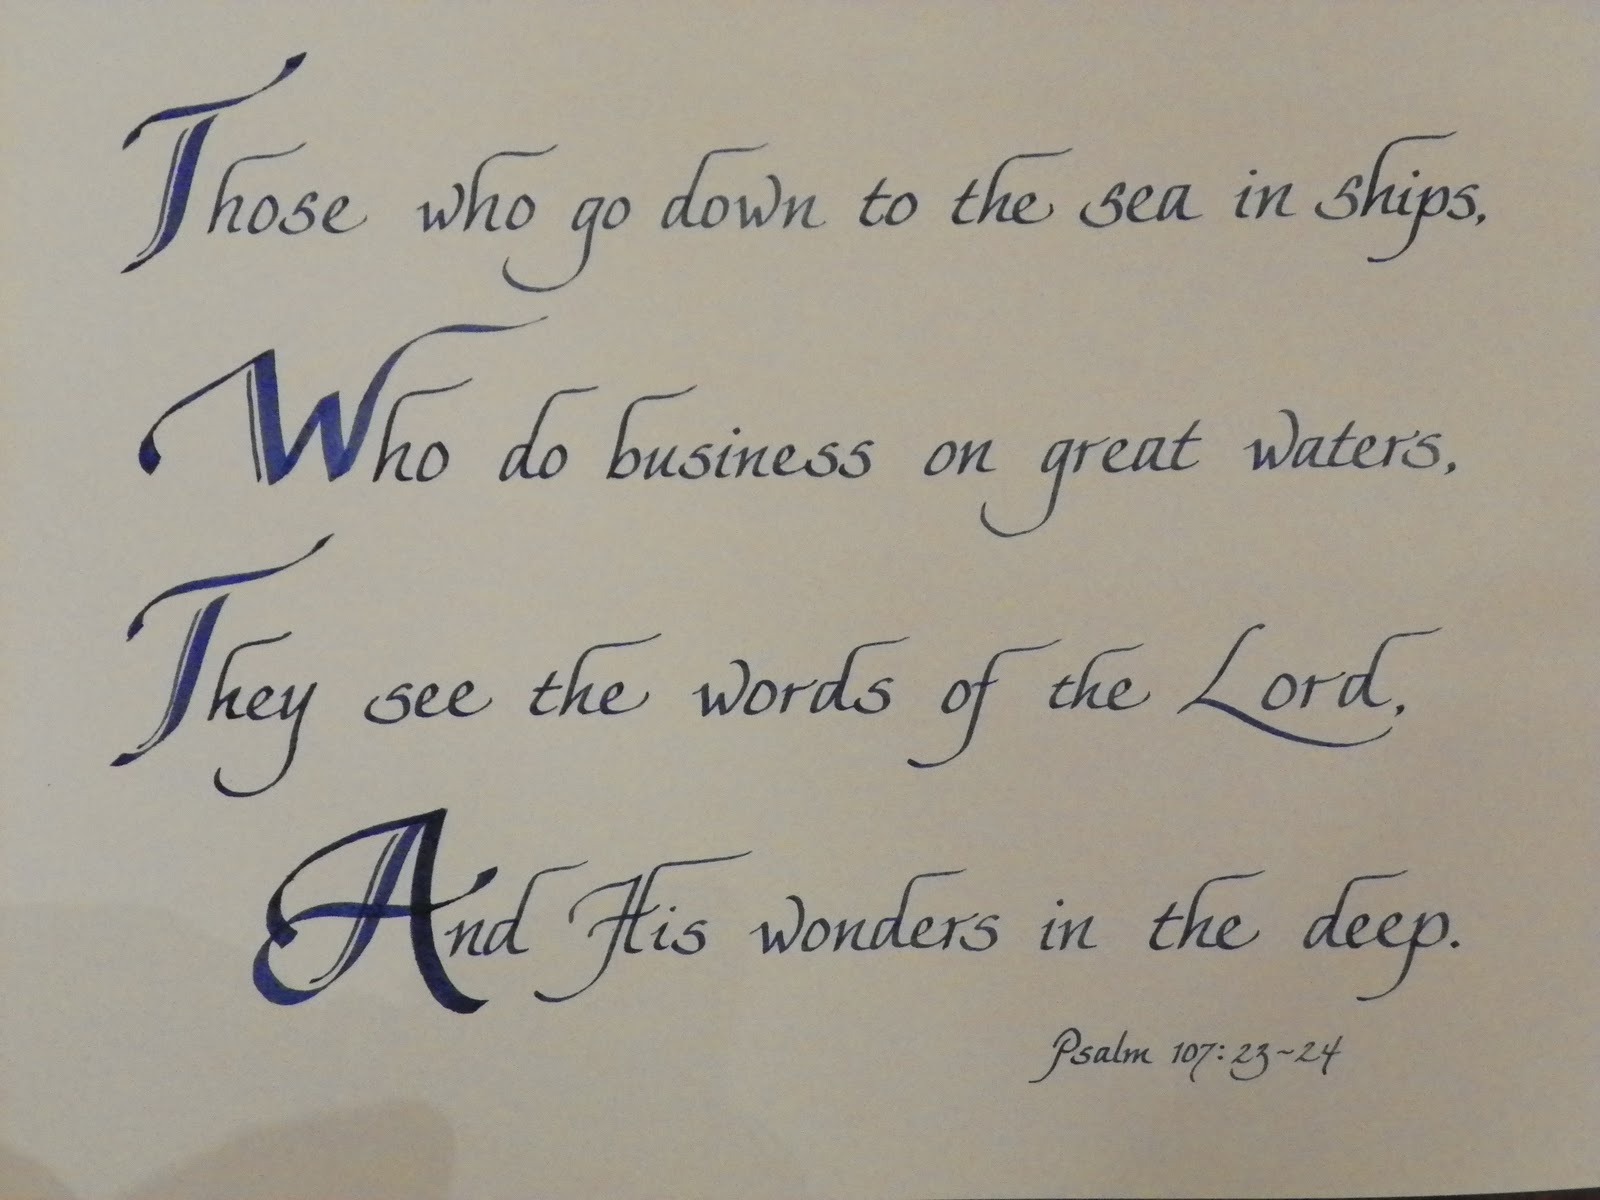 Those who go down to the sea in ships,
Who do business on great waters,
They see the words of the Lord,
And His wonders in the deep.
Psalm 107:23~24